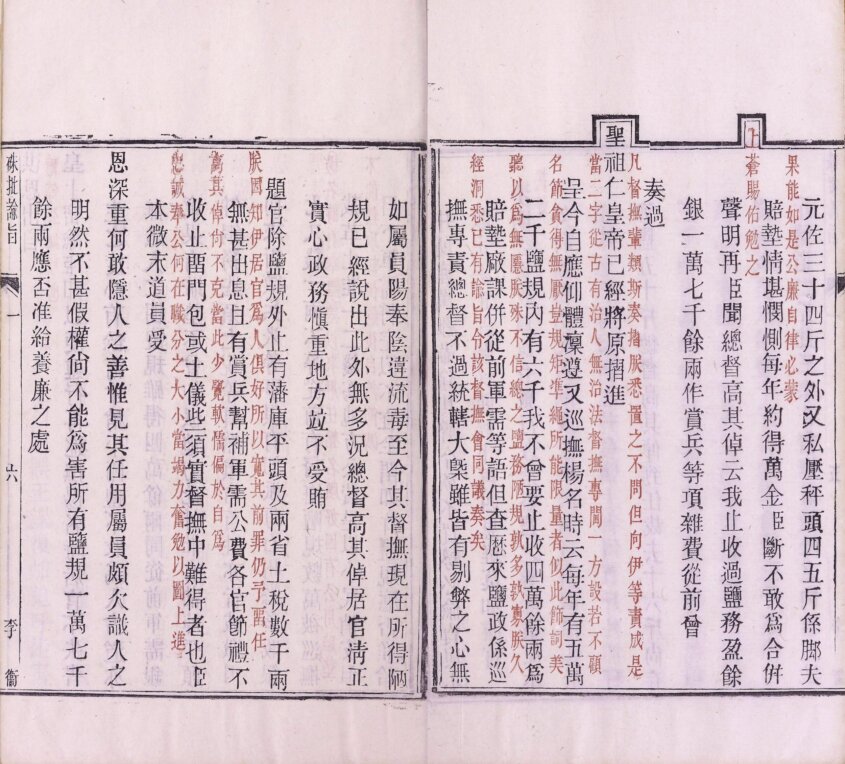 元佐三十四斤之外又私壓秤頭四五斤係腳夫
果能如是公廉自律必蒙
賠墊情堪憫惻每年約得萬金臣斷不敢爲合併
上蒼賜佑勉之
聲明再臣聞總督高其倬云我止收過鹽務盈餘
銀一萬七千餘兩作賞兵等項雜費從前曾
奏過
聖祖仁皇帝已經將原摺進
凡督撫輩類斯奏指朕悉置之不問但向伊等責成是
當二字從古有治人無治法督撫專閫一方設若不顧
呈今自應仰體凜遵又巡撫楊名時云每年有五萬
名節貪得無厭豈規矩準繩所能限量者似此飾詞美
二千鹽規內有六千我不曾要止收四萬餘兩爲
聽以爲無隱朕殊不信總之鹽務陋規孰多孰寡朕久
賠墊廠課併從前軍需等語但查歷來鹽政係巡
經洞悉已有諭旨令該督撫會同議奏矣
撫專責總督不過統轄大槩雖皆有剔弊之心無
如屬員陽奉陰違流毒至今其督撫現在所得陋
規已經說出此外無多況總督高其倬居官清正
實心政務慎重地方並不受賄
題官除鹽規外止有藩庫平頭及兩省土稅數千兩
朕因知伊居官爲人俱好所以寬其前罪仍予留任
無甚出息且有賞兵幫補軍需公費各官節禮不
禽其倬尙不克當此少覺軟懦偏於自爲
收止留門包或土儀些須實督撫中難得者也臣
忠誠奉公何在職分之大小當竭力奮勉以圖上進
本微末道員受
恩深重何敢隱人之善惟見其任用屬員頗欠識人之
明然不甚假權尙不能爲害所有鹽規一萬七千
餘兩應否准給養廉之處
硃批諭旨
一
六
李衞